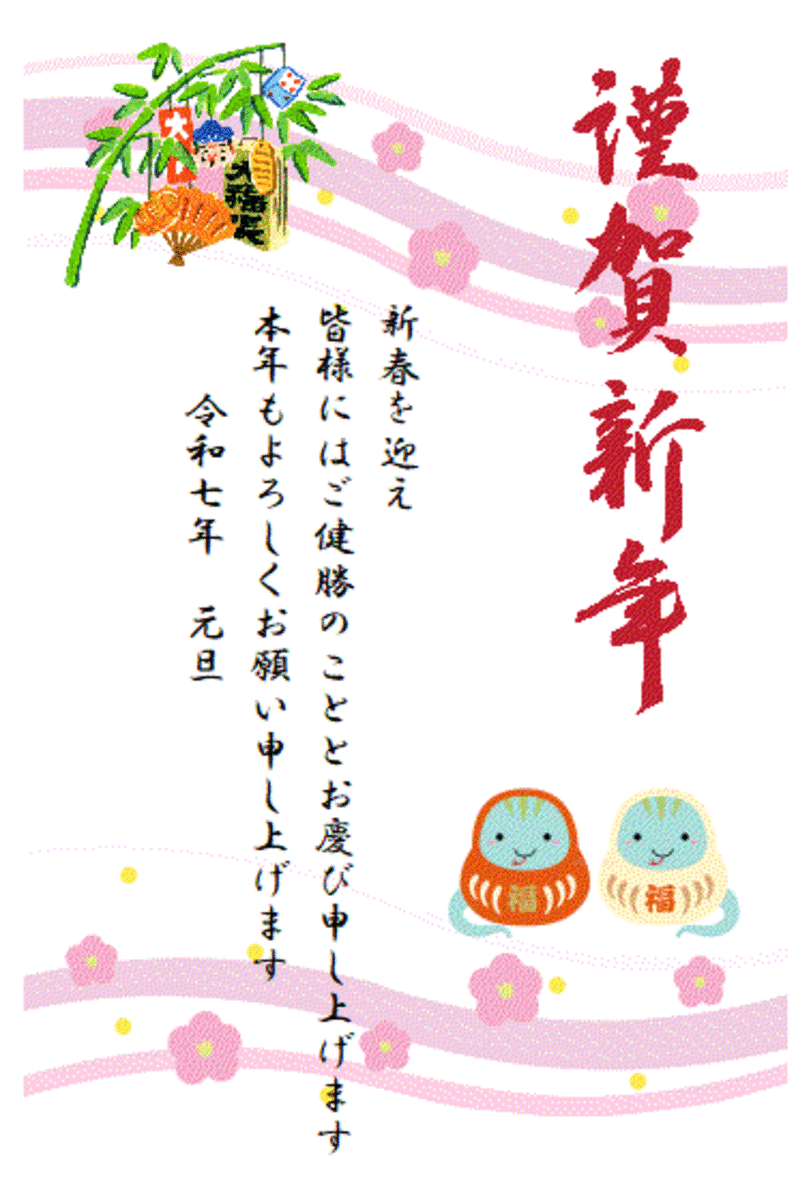 謹賀新年
新春を迎え
皆様にはご健勝のこととお慶び申し上げます
本年もよろしくお願い申し上げます
令和七年　元旦
福
福